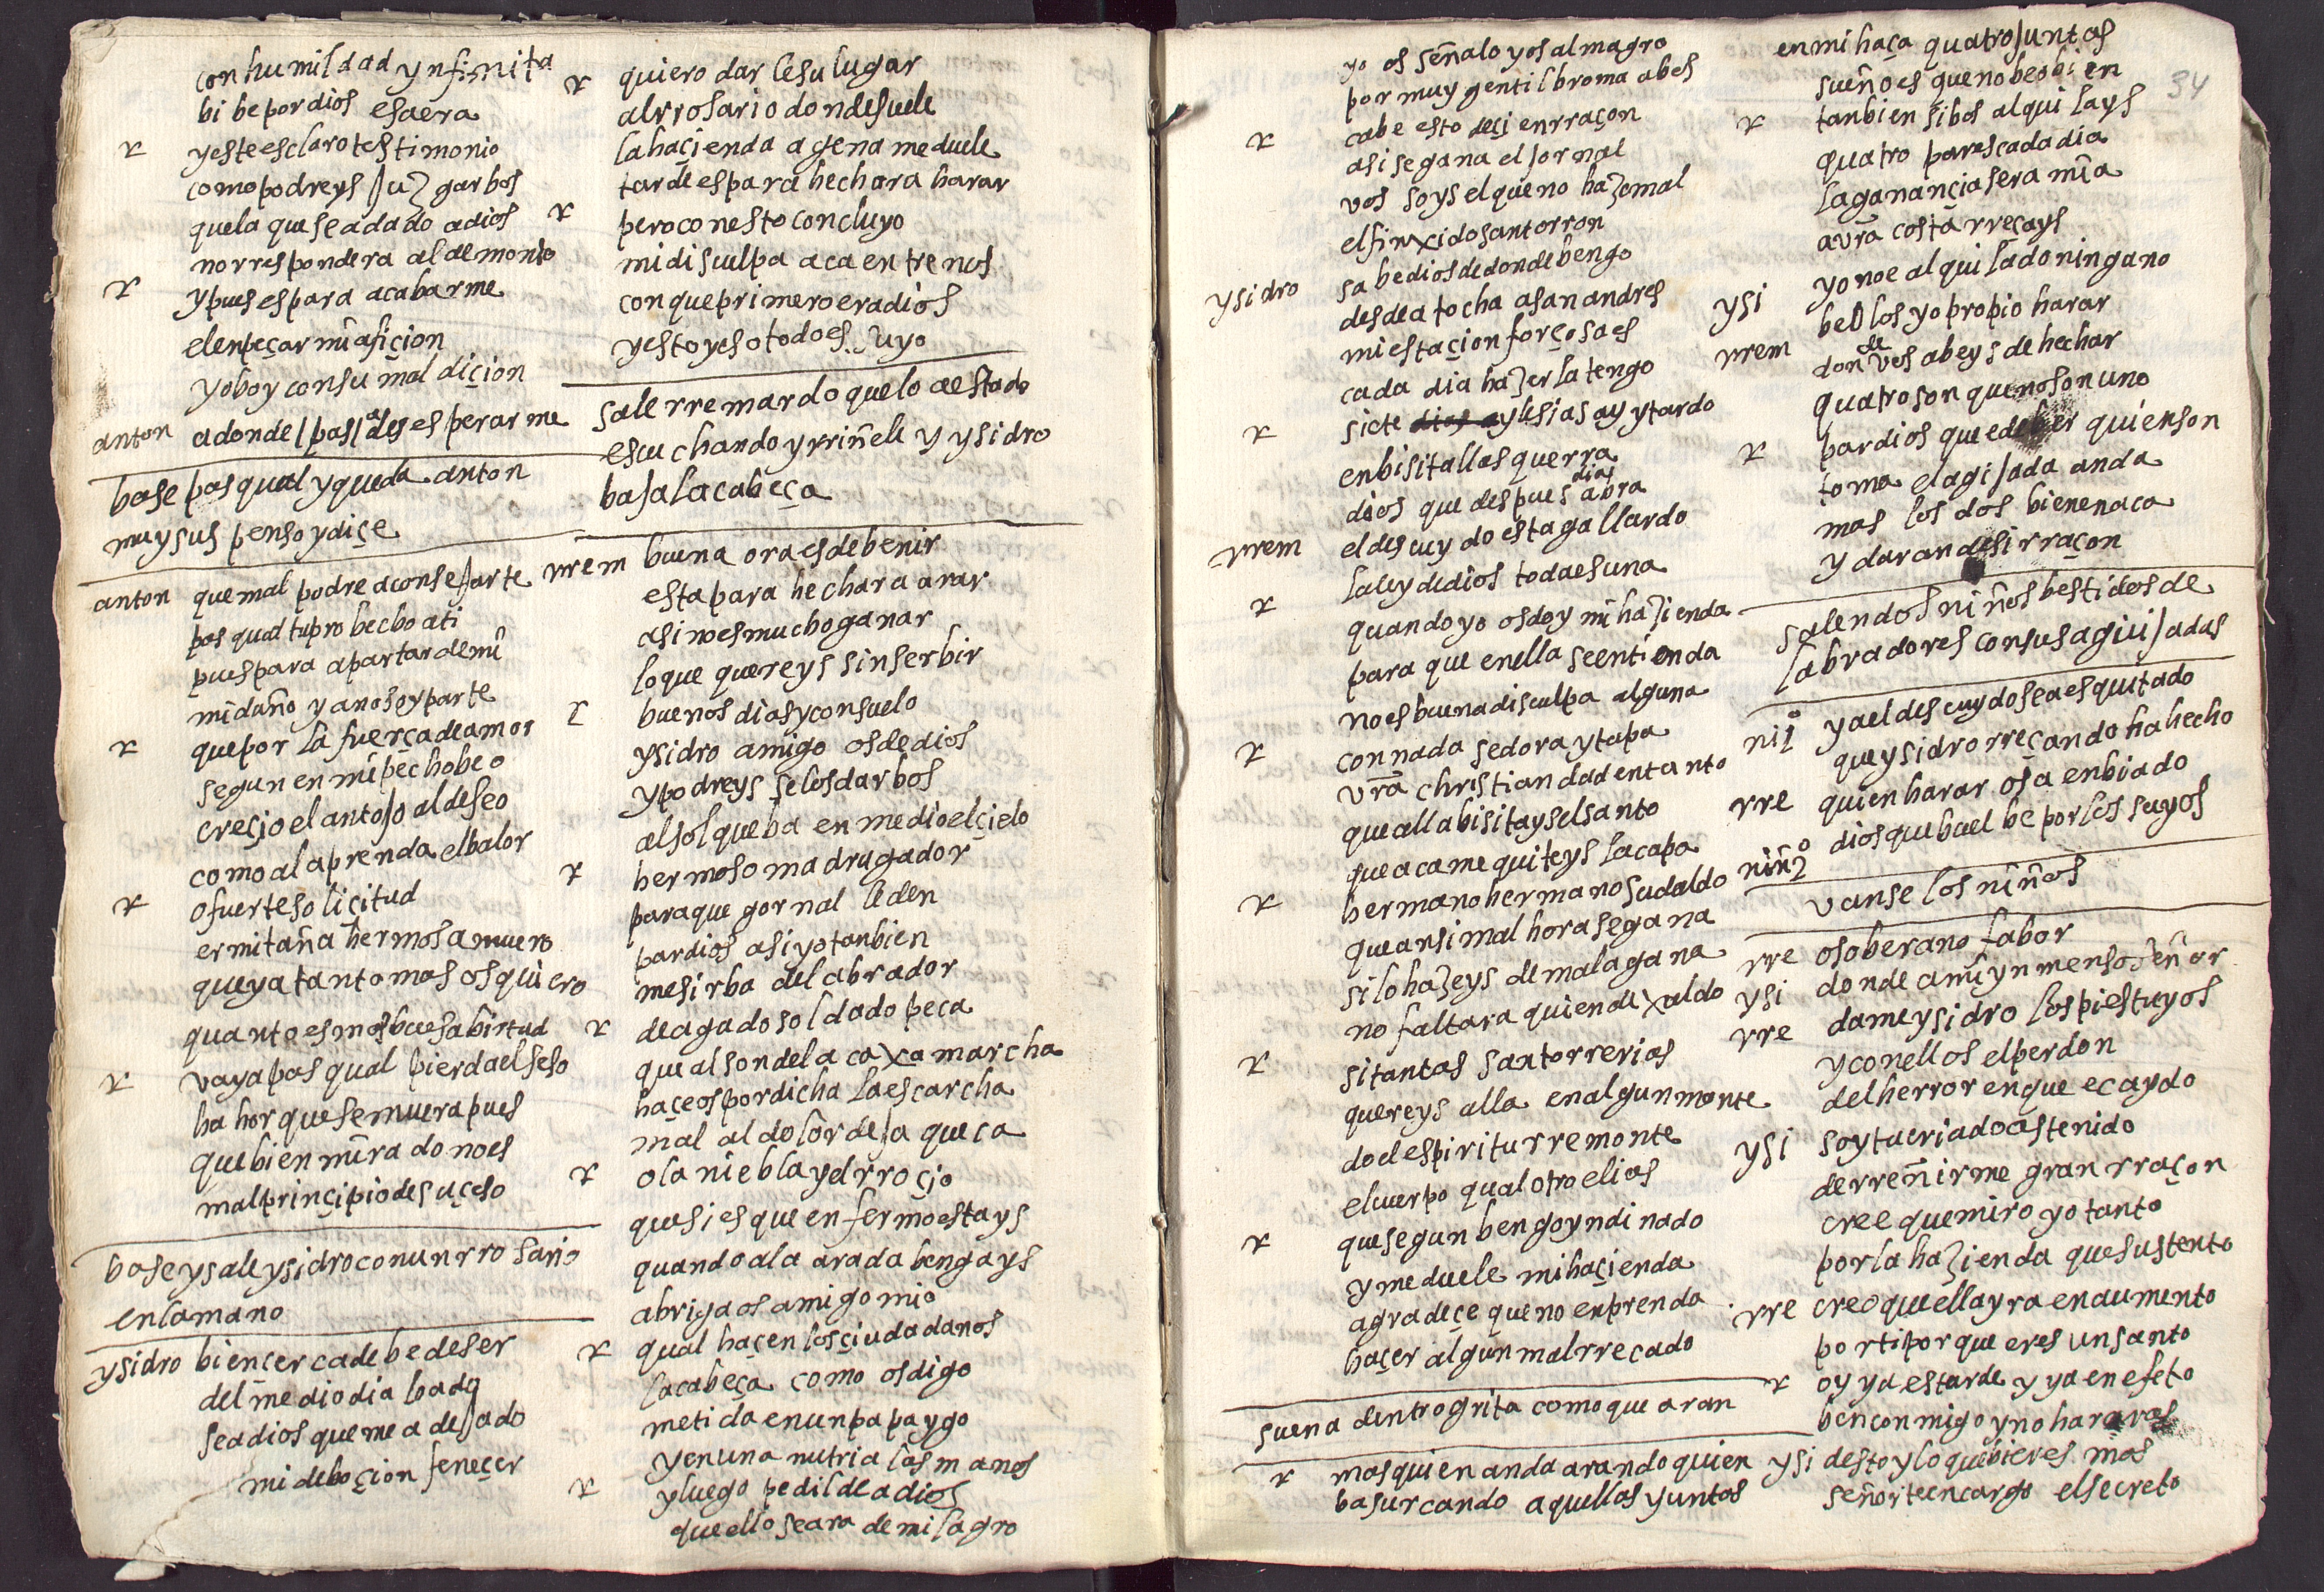 con humildad ynfinita
bibe por dios esa era
r yeste es claro testimonio
como podreys juzgar bos
que la que se a dado a dios
no rrespondera al demonio
r y pues es para acabarme
el enpeçar mi afiçion
yo boy con su maldiçion
anton adonde / pas / a des esperarme
base pasqual y queda anton
muy suspenso y diçe
anton que mal podre aconsejarte
pasqual tu probecho a ti
pues para apartar de mi
mi daño ya no soy parte
r que por la fuerça de amor
segun en mi pecho beo
creçio el antojo al deseo
como a la prenda el balor
r o fuerte soliçitud
ermitaña hermosa muero
que ya tanto mas os quiero
quanto es mas buesa birtud
r vaya pasqual pierda el seso
ha hor que se muera pues
que bien mirado no es
mal prinçipio de suçeso
base y sale ysidro con un rrosario
en la mano
ysidro bien çerca debe de ser
del mediodia bado
sea dios que me a dejado
mi deboçion feneçer
r quiero dar le su lugar
al rrosario donde suele
la haçienda agena me duele
tarde es para hechar a harar
r pero con esto concluyo
mi disculpa aca entre nos
con que primero era dios
y esto y eso todo es suyo
sale rremardo que lo a estado
escuchando y rriñele y ysidro
baja la cabeça
rrem buena ora es de benir
esta para hechar a arar
asi no es mucho ganar
lo que quereys sin serbir
r buenos dias y consuelo
ysidro amigo os de dios
y podreys se los dar bos
al sol que ba en medio el çielo
r hermoso madrugador
para que gornal le den
par dios asi yo tanbien
me sirba de labrador
r de agado soldado peca
que al son de la caxa marcha
haçeos por dicha la escarcha
mal al dolor de jaqueca
r o la niebla y el rroçio
que si es que enfermo estays
quando a la arada bengays
abrigaos amigo mio
r qual haçen los çiudadanos
la cabeça como os digo
metida en un papaygo
y en una nutria las manos
r y luego pedilde a dios
que ello se ara de milagro
yo os señalo y os almagro
por muy gentil broma a bos
r cabe esto deçi en rraçon
asi se gana el jornal
vos soys el que no haze mal
el finxido santorron
ysidro sabe dios de donde bengo
desde atocha a san andres
mi estaçion forçosa es
cada dia hazer la tengo
r siete yglesias ay y tardo
en bisitallas querra
dios que despues dias abra
rrem el descuydo esta gallardo
r la ley de dios toda es una
quando yo os doy mi hazienda
para que en ella se entienda
no es buena disculpa alguna
r con nada se dora y tapa
vra christiandad en tanto
que alla bisitays el santo
que aca me quiteys la capa
r hermano hermano sudaldo
que ansi mal hora se gana
si lo hazeys de mala gana
no faltara quien dexaldo
r si tantas santorrerias
quereys alla en algun monte
do el espiritu rremonte
el cuerpo qual otro elias
r que segun bengo yndinado
y me duele mi haçienda
agradeçe que no enprenda
haçer algun mal rrecado
suena dentro grita como que aran
r mas quien anda arando quien
ba surcando aquellas yuntas
34
en mi haça quatro juntas
sueño es que no beo bien
r tanbien si bos alquilays
quatro pares cada dia
la ganançia sera mia
a vra costa rreçays
ysi yo no e alquilado ninguno
belos yo propio harar
rrem don de ves abeys de hechar
quatro son que no son uno
r par dios que e de ber quien son
toma el agijada anda
mas los dos bienen aca
y daran de si rraçon
salen dos niños bestidos de
labradores con sus aguijadas
niº 1 ya el descuydo sea esquitado
que ysidro rreçando ha hecho
rre quien harar os a enbiado
niñº 2 dios que buelbe por los suyos
vanse los niños
rre o soberano fabor
ysi donde a mi ynmenso señor
rre dame ysidro los pies tuyos
y con ellos el perdon
del herror en que e caydo
ysi soy tu criado as tenido
de rreñirme gran rraçon
cree que miro yo tanto
por la hazienda que sustento
rre creo que ella yra en aumento
por ti porque eres un santo
r oy ya es tarde y ya en efeto
ben conmigo y no araras
ysi desto y lo que bieres mas
señor te encargo el secreto